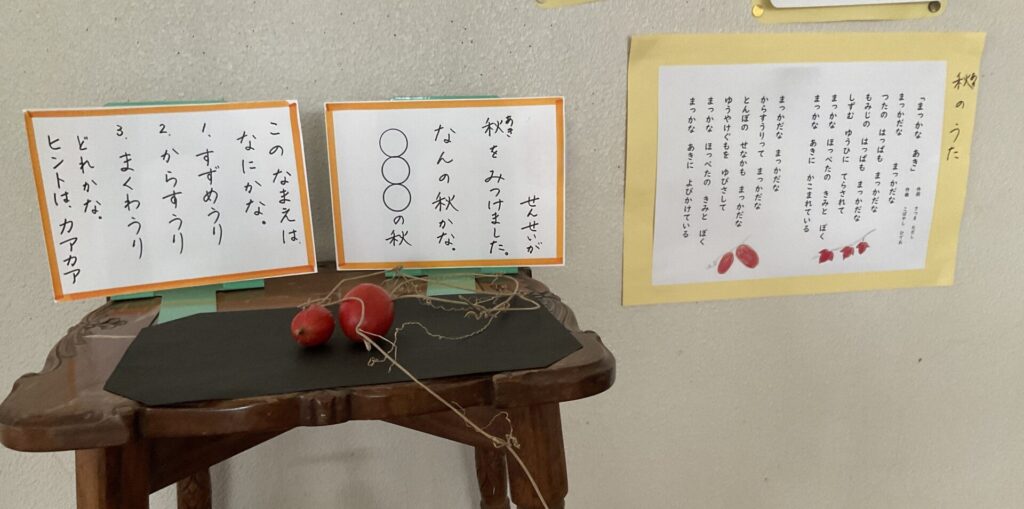 秋のうた
「まっかな　あき」
作詞　さつま　ただし
作曲　こばやし　ひでお
まっかだな　まっかだな
つたの　はっぱも　まっかだな
もみじの　はっぱも　まっかだな
しずむ　ゆうひに　てらされて
まっかな　ほっぺたの　きみと　ぼく
まっかな　あきに　かこまれている
まっかだな　まっかだな
からすうりって　まっかだな
とんぼの　せなかも　まっかだな
ゆうやけぐもを　ゆびさして
まっかな　ほっぺたの　きみと　ぼく
まっかな　あきに　よびかけている
せんせいが
秋をみつけました。
なんの秋かな。
〇〇〇の秋
このなまえは、
なにかな。
1. すずめうり
2. からすうり
3. まくわうり
どれかな。
ヒントは、カアカア